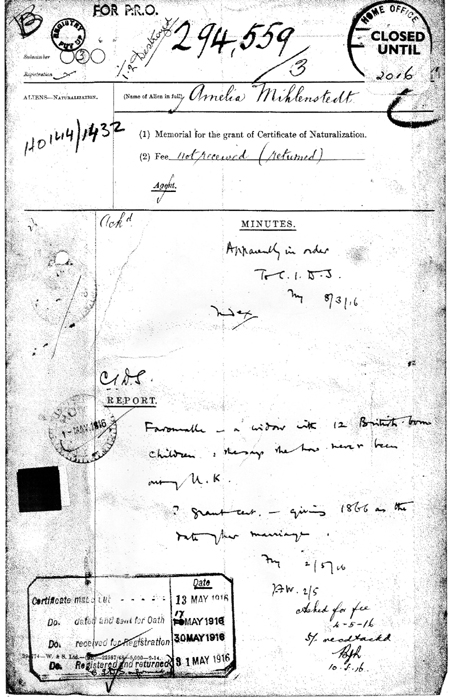 B
FOR P.R.O.
REGISTRY
294,559
/3
HOME OFFICE
CLOSED
UNTIL
2016
Registration
ALIENS—NATURALIZATION.
(Name of Alien in full) Amelia Mihlenstedt
HO 144/1432
(1) Memorial for the grant of Certificate of Naturalization.
(2) Fee not received (returned)
Agent.
Ack'd
MINUTES.
Apparently in order
To C.I.D.
8/3/16
Index
REPORT.
Favourable – a widow with 12 British-born
children, she says she has never been
out of U.K.
? Grant cert. – giving 1866 as the
date of her marriage.
2/5/16
2/5
Asked for fee
4-5-16
10-5-16
Date
Certificate 13 MAY 1916
Do. dated and sent for Oath MAY 1916
Do. received for Registration 30 MAY 1916
Do. Registered and returned 31 MAY 1916